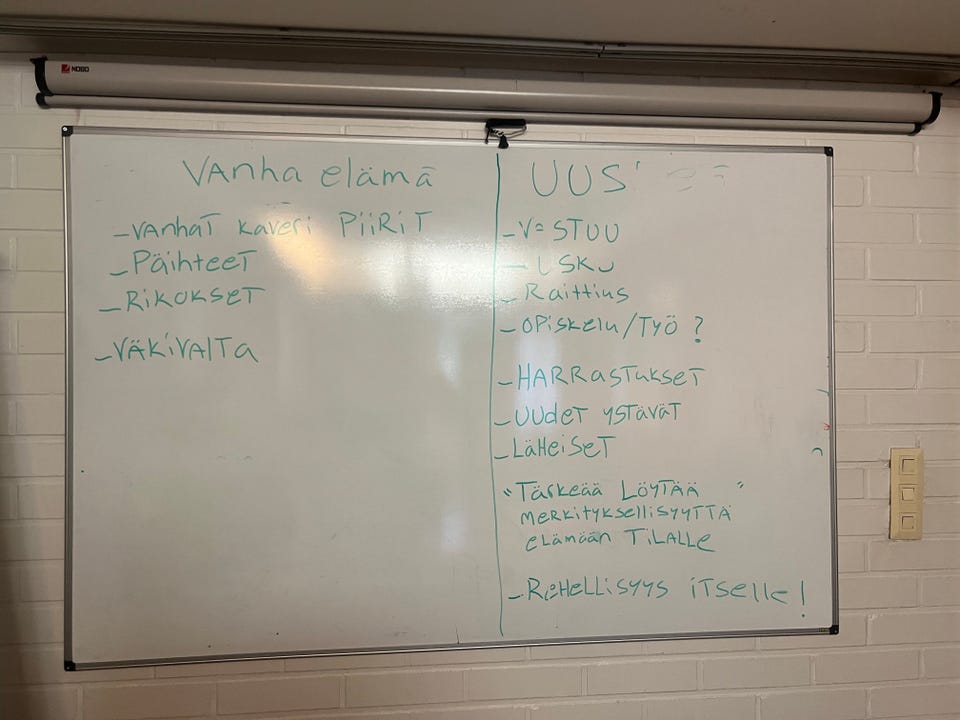 NOBO
VANha elämä
-VANHAT kaveri PiiRiT
-Päihteet
-RikoKSET
-VÄKiVAlTa
UUSi
-VaSTUU
-USKO
-Raittius
-OPiSkelu/TYÖ ?
-HARRaSTukSeT
-UUdeT YSTäVäT
-LäHeiSeT
"TäRKeää LÖYTÄÄ "
meRKiTYKSelliSYYTTÄ
elämään TiLALLe
-ReHeLLiSYYS iTSelle!